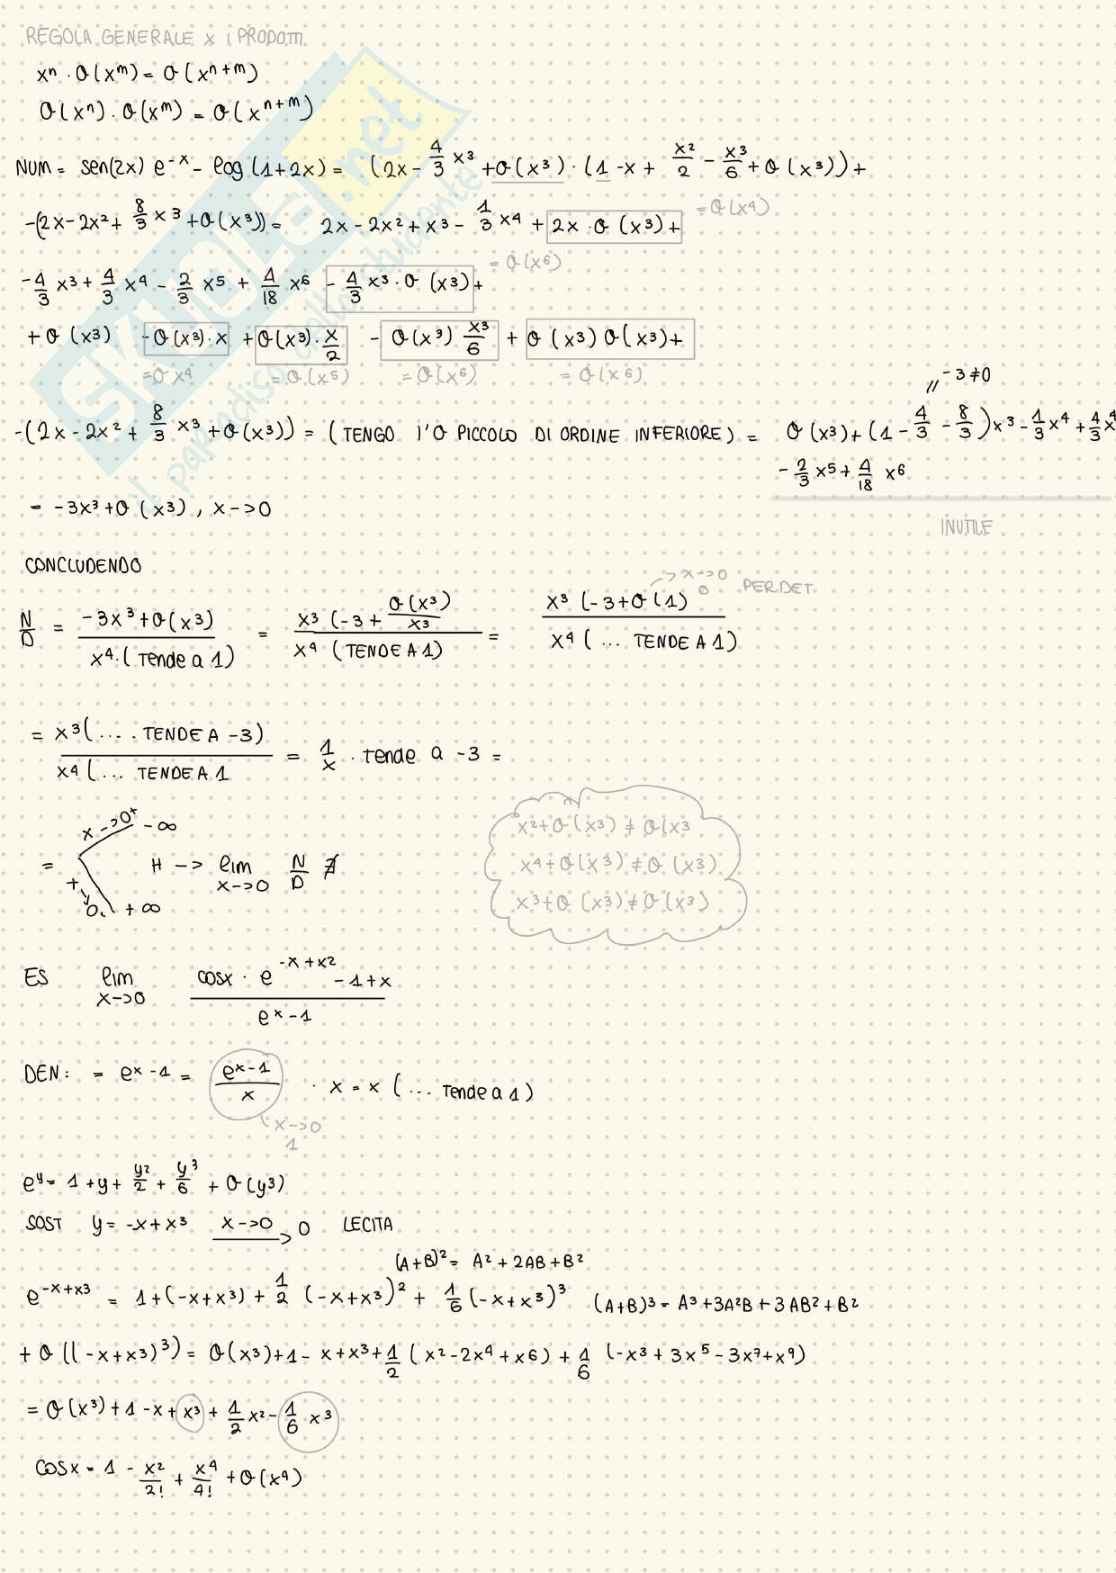 REGOLA GENERALE x i PRODOTTI.
xⁿ · O(xᵐ) = O(xⁿ⁺ᵐ)
O(xⁿ) · O(xᵐ) = O(xⁿ⁺ᵐ)
NUM = sen(2x) e⁻ˣ - log(1+2x) = (2x - 4/3 x³ + O(x³) · (1 - x + x²/2 - x³/6 + O(x³)) +
-(2x - 2x² + 8/3 x³ + O(x³)) = 2x - 2x² + x³ - 1/3 x⁴ + 2x · O(x³) + = O(x⁴)
-4/3 x³ + 4/3 x⁴ - 2/3 x⁵ + 4/18 x⁶ - 4/3 x³ · O(x³) + = O(x⁶)
+ O(x³) - O(x³) · x + O(x³) · x/2 - O(x³) x³/6 + O(x³) O(x³) +
= O x⁴ = O(x⁵) = O(x⁶) = O(x⁶)
-(2x - 2x² + 8/3 x³ + O(x³)) = (TENGO l'O PICCOLO DI ORDINE INFERIORE) = O(x³) + (1 - 4/3 - 8/3) x³ - 1/3 x⁴ + 4/3 x⁴
// -3≠0
- 2/3 x⁵ + 4/18 x⁶
INUTILE
= -3x³ + O(x³), x -> 0
CONCLUDENDO
N/D = -3x³ + O(x³) / x⁴ · (Tende a 1) = x³ (-3 + O(x³)/x³ / x⁴ (TENDE A 1) = x³ (-3 + O(1) / x⁴ (... TENDE A 1)
x->0 0 PER DEF.
= x³ (.... TENDE A -3) / x⁴ (... TENDE A 1 = 1/x · tende a -3 =
= x->0⁺ -∞
H -> lim x->0 N/D ∄
0 + ∞
x² + O(x³) ≠ O(x³
x⁴ + O(x³) ≠ O(x³)
x³ + O(x³) ≠ O(x³)
ES lim x->0 cosx · e^(-x+x²) - 1 + x / eˣ - 1
DEN: = eˣ - 1 = eˣ-1 / x · x = x (... Tende a 1)
x->0
1
eʸ = 1 + y + y²/2 + y³/6 + O(y³)
SOST y = -x + x³ x->0 0 LECITA
(A+B)² = A² + 2AB + B²
e^(-x+x3) = 1 + (-x+x³) + 1/2 (-x+x³)² + 1/6 (-x+x³)³ (A+B)³ = A³ + 3A²B + 3AB² + B²
+ O((-x+x³)³) = O(x³) + 1 - x + x³ + 1/2 (x² - 2x⁴ + x6) + 1/6 (-x³ + 3x⁵ - 3x⁷ + x⁹)
= O(x³) + 1 - x + x³ + 1/2 x² - 1/6 x³
cosx = 1 - x²/2! + x⁴/4! + O(x⁴)
SKUOLA.net